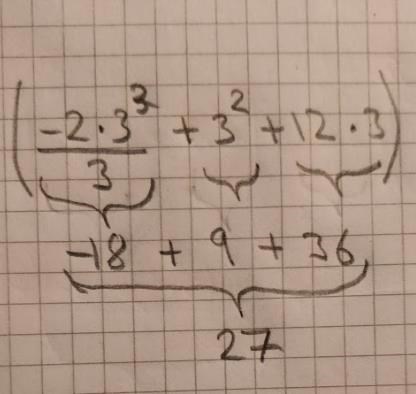 (-2·3³/3 + 3² + 12·3)
-18 + 9 + 36
27